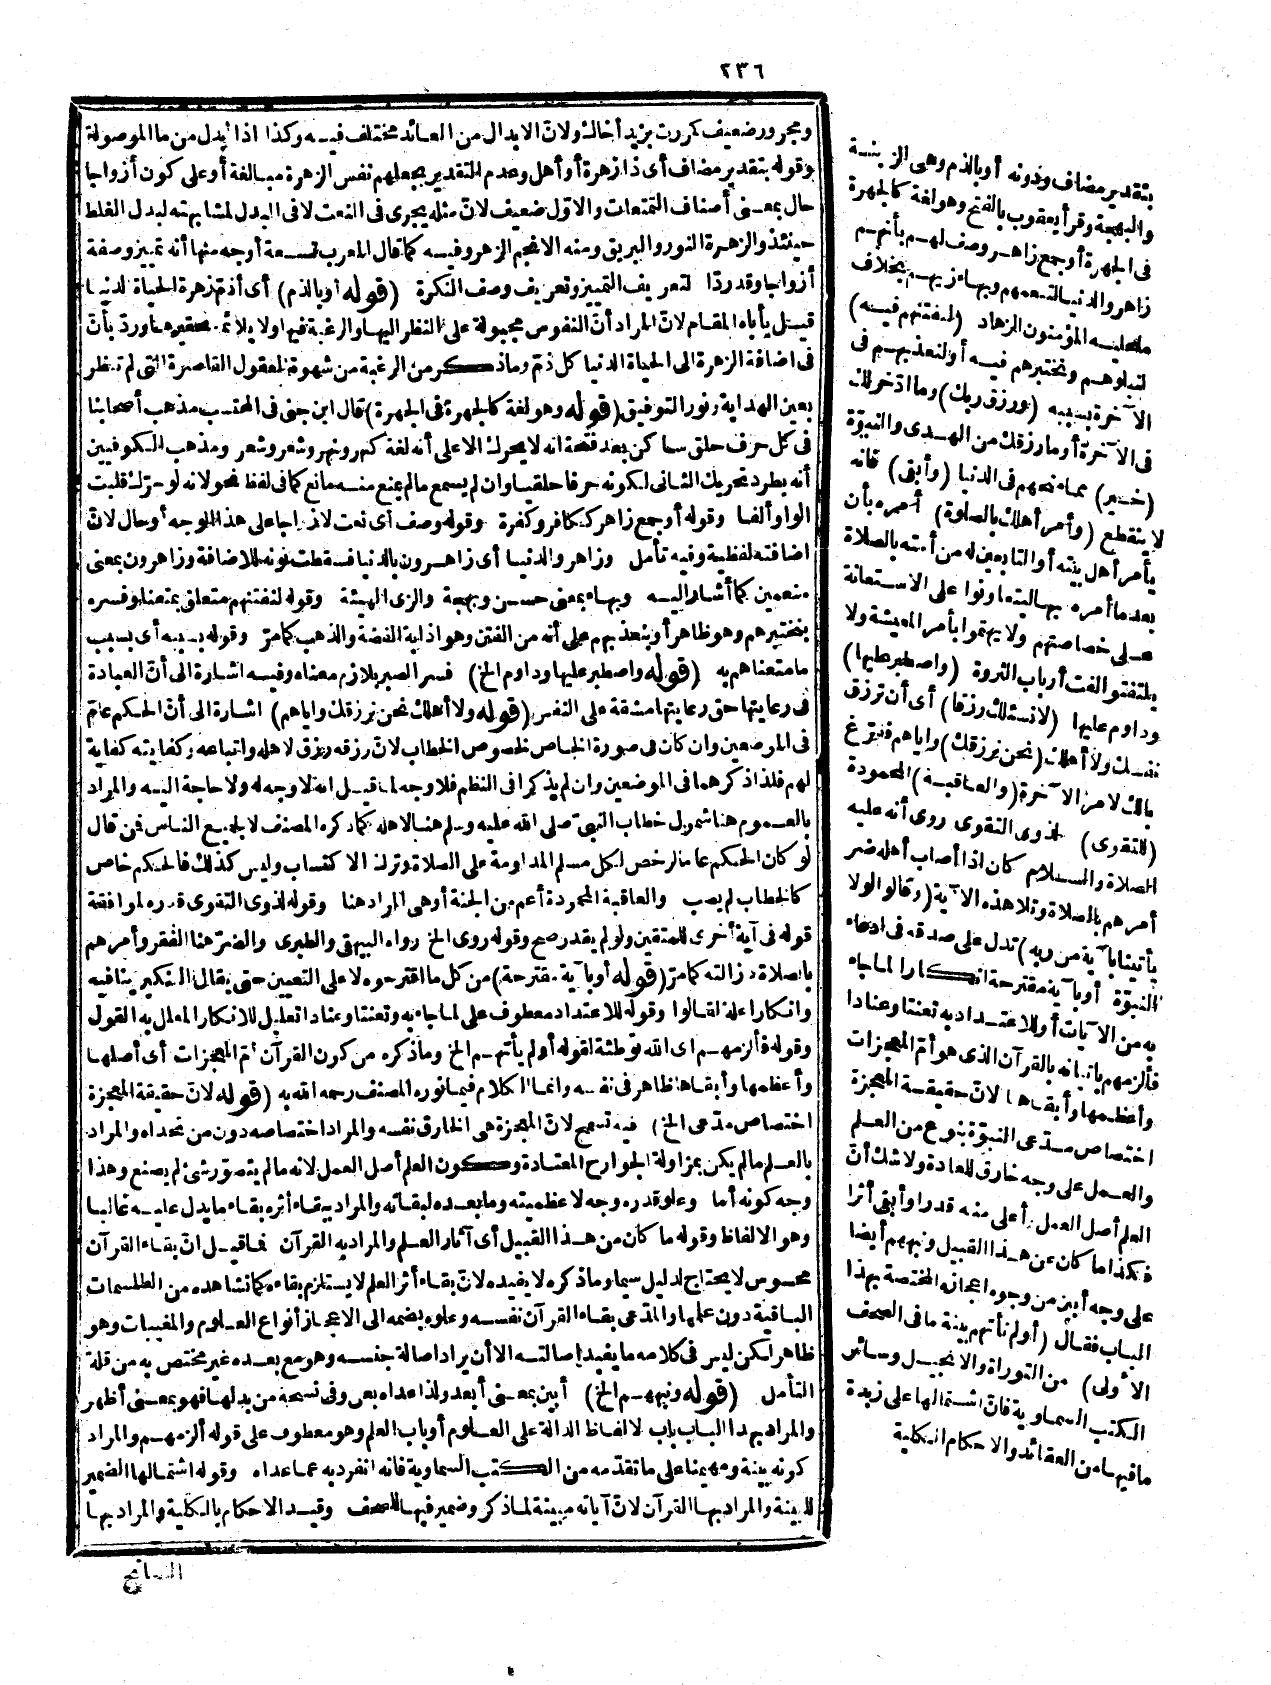 ٢٣٦
ومجرور ضعيف كمررت بزيد أخاك ولانّ الابدال من العائد مختلف فيه وكذا اذا أبدل من ما الموصولة
وقوله بتقدير مضاف أى ذا زهرة أو أهل وعدم التقدير بجعلهم نفس الزهرة مبالغة أو على كون أزواجا
حال بمعنى أصناف التمتعات والاوّل ضعيف لانّ مثله يجرى فى النعت لا فى البدل لمشابهته لبدل الغلط
حينئذ والزهرة النور والبريق ومنه الانجم الزهر وفيه كما قال المعرب تسعة أوجه منها أنه تمييز وصفة
أزواجا وقد ردّا لتعريف التمييز وتعريف وصف النكرة (قوله أو بالذم) أى أذمّ زهرة الحياة الدنيا
قيل يأباه المقام لانّ المراد أنّ النفوس مجبولة على النظر اليها والرغبة فيها ولا يلائمه تحقيرها وردّ بأنّ
فى اضافة الزهرة الى الحياة الدنيا كل ذمّ وما ذكر من الرغبة من شهوة العقول القاصرة التى لم تنظر
بعين الهداية ونور التوفيق (قوله وهو لغة كالجهرة فى الجهرة) قال ابن جنى فى المحتسب مذهب أصحابنا
فى كل حرف حلق ساكن بعد فتحة انه لا يحرك الا على أنه لغة كنهر ونهر وشعر وشعر ومذهب الكوفيين
أنه يطرد تحريك الثانى لكونه حرفا حلقيا وان لم يسمع ما لم يمنع منه مانع كما فى لفظ نحو لانه لو حرّك قلبت
الواو ألفا وقوله أو جمع زاهر ككافر وكفرة وقوله وصف أى نعت لازواجا على هذا الوجه أو حال لانّ
اضافته لفظية وفيه تأمل وزاهر والدنيا أى زاهرون بالدنيا فسقطت نونه للاضافة وزاهرون بمعنى
متنعمين كما أشار اليه وبهاء بمعنى حسن وبهجة والزى الهيئة وقوله لنفتنهم متعلق بمتعنا وفسره
بنختبرهم وهو ظاهر أو بنعذبهم على أنه من الفتن وهو اذابة الفضة والذهب كما مرّ وقوله بسببه أى بسبب
ما متعناهم به (قوله واصطبر عليها وداوم الخ) فسر الصبر بلازم معناه وفيه اشارة الى أنّ العبادة
فى رعايتها حق رعايتها مشقة على النفس (قوله ولا أهلك نحن نرزقك واياهم) اشارة الى أنّ الحكم عامّ
فى الموضعين وان كان فى صورة الخاص لخصوص الخطاب لانّ رزقه رزق لاهله واتباعه وكفايته كفاية
لهم فلذا ذكرهما فى الموضعين وان لم يذكرا فى النظم فلا وجه لما قيل انه لا وجه له ولا حاجة اليه والمراد
بالعموم هنا شمول خطاب النبىّ صلى الله عليه وسلم هنا لاهله كما ذكره المصنف لا لجميع الناس فمن قال
لو كان الحكم عاما لرخص لكل مسلم المداومة على الصلاة وترك الاكتساب وليس كذلك فالحكم خاص
كالخطاب لم يصب والعاقبة المحمودة أعم من الجنة أو هى المراد هنا وقوله لذوى التقوى قدره لموافقة
قوله فى آية أخرى للمتقين ولو لم يقدر صح وقوله روى الخ رواه البيهقى والطبرى والضرّ هنا الفقر وأمرهم
بالصلاة لازالته كما مرّ (قوله أو بآية مقترحة) من كل ما اقترحوه لا على التعيين حتى يقال التنكير ينافيه
وانكارا علة لقالوا وقوله للاعتداد معطوف على لما جاء به وتعنتا وعنادا تعليل للانكار المعلل به القول
وقوله فألزمهم اى الله توطئة لقوله أولم يأتهم الخ وما ذكره من كون القرآن أمّ المعجزات أى أصلها
وأعظمها وأبقاها ظاهر فى نفسه وانما الكلام فيما نوره المصنف رحمه الله به (قوله لانّ حقيقة المعجزة
اختصاص مدّعى الخ) فيه تسمح لانّ المعجزة هى الخارق نفسه والمراد اختصاصه دون من تحداه والمراد
بالعلم ما لم يكن بمزاولة الجوارح المعتادة وكون العلم أصل العمل لانه ما لم يتصوّر شئ لم يصنع وهذا
وجه كونه أما وعلو قدره وجه لاعظميته وما بعده لبقائه والمراد ببقاء أثره بقاء ما يدل عليه غالبا
وهو الالفاظ وقوله ما كان من هذا القبيل أى آثار العلم والمراد به القرآن فما قيل انّ بقاء القرآن
محسوس لا يحتاج لدليل سيما وما ذكره لا يفيده لانّ بقاء أثر العلم لا يستلزم بقاءه كما نشاهده من الطلسمات
الباقية دون علمها والمدّعى بقاء القرآن نفسه وعلوه بضمه الى الاعجاز أنواع العلوم والمغيبات وهو
ظاهر لكن ليس فى كلامه ما يفيد اصالته الا أن يراد اصالة جنسه وهو مع بعده غير مختص به من قلة
التأمل (قوله ونبههم الخ) أبين بمعنى أبعد ولذا عداه بعن وفى نسخة من بدلها فهو بمعنى أظهر
والمراد بهذا الباب باب لالفاظ الدالة على العلوم أو باب العلم وهو معطوف على قوله ألزمهم والمراد
كونه بينة ومهيمنا على ما تقدّمه من الكتب السماوية فانه انفرد به عما عداه وقوله اشتمالها الضمير
للبينة والمراد بها القرآن لانّ آياته مبينة لما ذكر وضمير فيها للصحف وقيد الاحكام بالكلية والمراد بها
بتقدير مضاف ودونه أو بالذم وهى الزينة
والبهجة وقرأ يعقوب بالفتح وهو لغة كالجهرة
فى الجهرة أو جمع زاهر وصف لهم بأنهم
زاهر والدنيا لتنعمهم وبهاء زيهم بخلاف
ما عليه المؤمنون الزهاد (لنفتنهم فيه)
لنبلوهم ونختبرهم فيه أو لنعذبهم فى
الآخرة بسببه (ورزق ربك) وما ادّخر لك
فى الآخرة أو ما رزقك من الهدى والنبوّة
(خير) مما متعهم فى الدنيا (وأبقى) فانه
لا ينقطع (وأمر أهلك بالصلوة) أمره بأن
يأمر أهل بيته أو التابعين له من أمته بالصلاة
بعد ما أمره بها ليتعاونوا على الاستعانة
على خصاصتهم ولا يهتموا بأمر المعيشة ولا
يلتفتوا لفت أرباب الثروة (واصطبر عليها)
وداوم عليها (لا نسئلك رزقا) أى أن ترزق
نفسك ولا أهلك (نحن نرزقك) واياهم ففرّغ
بالك لامر الآخرة (والعاقبة) المحمودة
(للتقوى) لذوى التقوى روى أنه عليه
الصلاة والسلام كان اذا أصاب أهله ضر
أمرهم بالصلاة وتلا هذه الآية (وقالوا لولا
يأتينا بآية من ربه) تدل على صدقه فى ادعاء
النبوّة أو بآية مقترحة انكارا لما جاء
به من الآيات أو للاعتداد به تعنتا وعنادا
فألزمهم باتيانه بالقرآن الذى هو أمّ المعجزات
وأعظمها وأبقاها لانّ حقيقة المعجزة
اختصاص مدّعى النبوّة بنوع من العلم
والعمل على وجه خارق للعادة ولا شك أنّ
العلم أصل العمل وأعلى منه قدرا وأبقى أثرا
فكذا ما كان من هذا القبيل ونبههم أيضا
على وجه أبين من وجوه اعجازه المختصة بهذا
الباب فقال (أولم تأتهم بينة ما فى الصحف
الأولى) من التوراة والانجيل وسائر
الكتب السماوية فانّ اشتمالها على زبدة
ما فيها من العقائد والاحكام الكلية